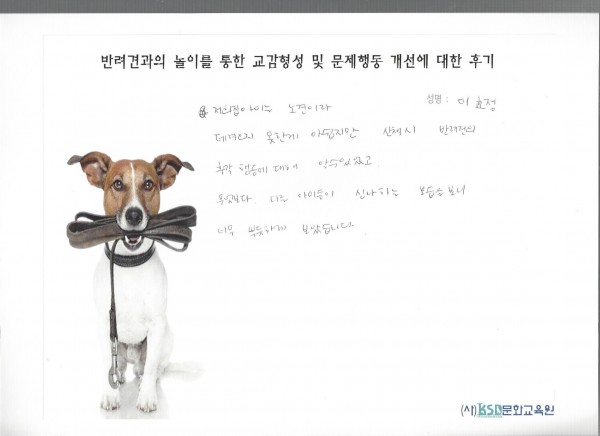 반려견과의 놀이를 통한 교감형성 및 문제행동 개선에 대한 후기
성명 : 이효정
저희집아이는 노견이라
데려오지 못한게 아쉽지만 산책시 반려견의
행동에 대해 알수있었고
무엇보다 다른 아이들이 신나하는 모습을 보니
너무 뿌듯하게 보았습니다.
(사)KSD문화교육원